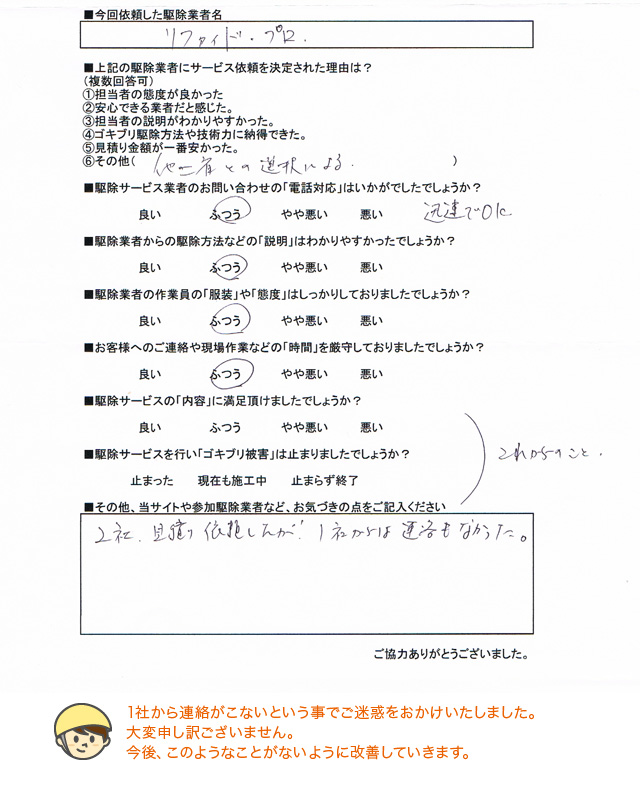 ■今回依頼した駆除業者名
リファイド・プロ.
■上記の駆除業者にサービス依頼を決定された理由は？
(複数回答可)
①担当者の態度が良かった
②安心できる業者だと感じた。
③担当者の説明がわかりやすかった。
④ゴキブリ駆除方法や技術力に納得できた。
⑤見積り金額が一番安かった。
⑥その他( 他一者との選択による. )
■駆除サービス業者のお問い合わせの「電話対応」はいかがでしたでしょうか？
良い ふつう やや悪い 悪い 迅速でOK
■駆除業者からの駆除方法などの「説明」はわかりやすかったでしょうか？
良い ふつう やや悪い 悪い
■駆除業者の作業員の「服装」や「態度」はしっかりしておりましたでしょうか？
良い ふつう やや悪い 悪い
■お客様へのご連絡や現場作業などの「時間」を厳守しておりましたでしょうか？
良い ふつう やや悪い 悪い
■駆除サービスの「内容」に満足頂けましたでしょうか？
良い ふつう やや悪い 悪い
■駆除サービスを行い「ゴキブリ被害」は止まりましたでしょうか？
これからのこと.
止まった 現在も施工中 止まらず終了
■その他、当サイトや参加駆除業者など、お気づきの点をご記入ください
2社、見積り依頼したが、1社からは連絡もなかった。
ご協力ありがとうございました。
1社から連絡がこないという事でご迷惑をおかけいたしました。
大変申し訳ございません。
今後、このようなことがないように改善していきます。